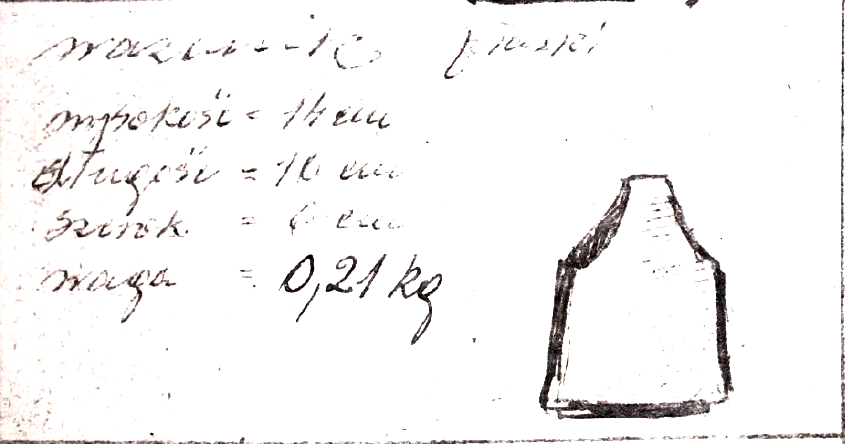 płaski
wysokość = 14 cm
długość = 10 cm
szerok = 6 cm
waga = 0,21 kg